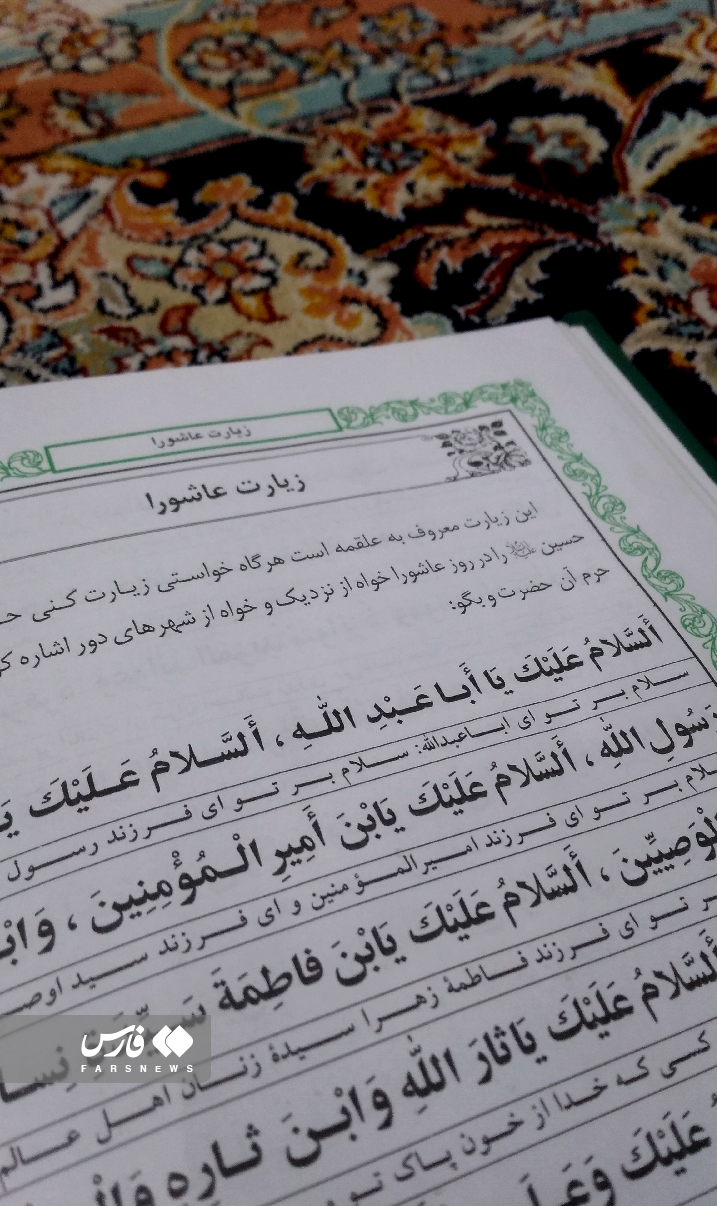 زیارت عاشورا
زیارت عاشورا
این زیارت معروف به علقمه است هرگاه خواستی زیارت کنی
حسین را در روز عاشورا خواه از نزدیک و خواه از شهرهای دور اشاره
حرم آن حضرت و بگو:
أَلسَّلامُ عَلَيْكَ يَا أَبا عَبْدِ اللّٰهِ ، أَلسَّلامُ عَلَيْكَ
سلام بر تو ای اباعبدالله: سلام بر تو ای فرزند رسول
رَسُولِ اللّٰهِ ، أَلسَّلامُ عَلَيْكَ يَابْنَ أَمِيرِ الْمُؤْمِنِينَ ،
سلام بر تو ای فرزند امیرالمؤمنین و ای فرزند سید
الْوَصِيِّينَ ، أَلسَّلامُ عَلَيْكَ يَابْنَ فاطِمَةَ
بر تو ای فرزند فاطمهٔ زهرا سیدهٔ زنان اهل عالم
أَلسَّلامُ عَلَيْكَ يَاثارَ اللّٰهِ وَابْنَ ثارِهِ
کسی که خدا از خون پاک
عَلَيْكَ
فارس
FARSNEWS